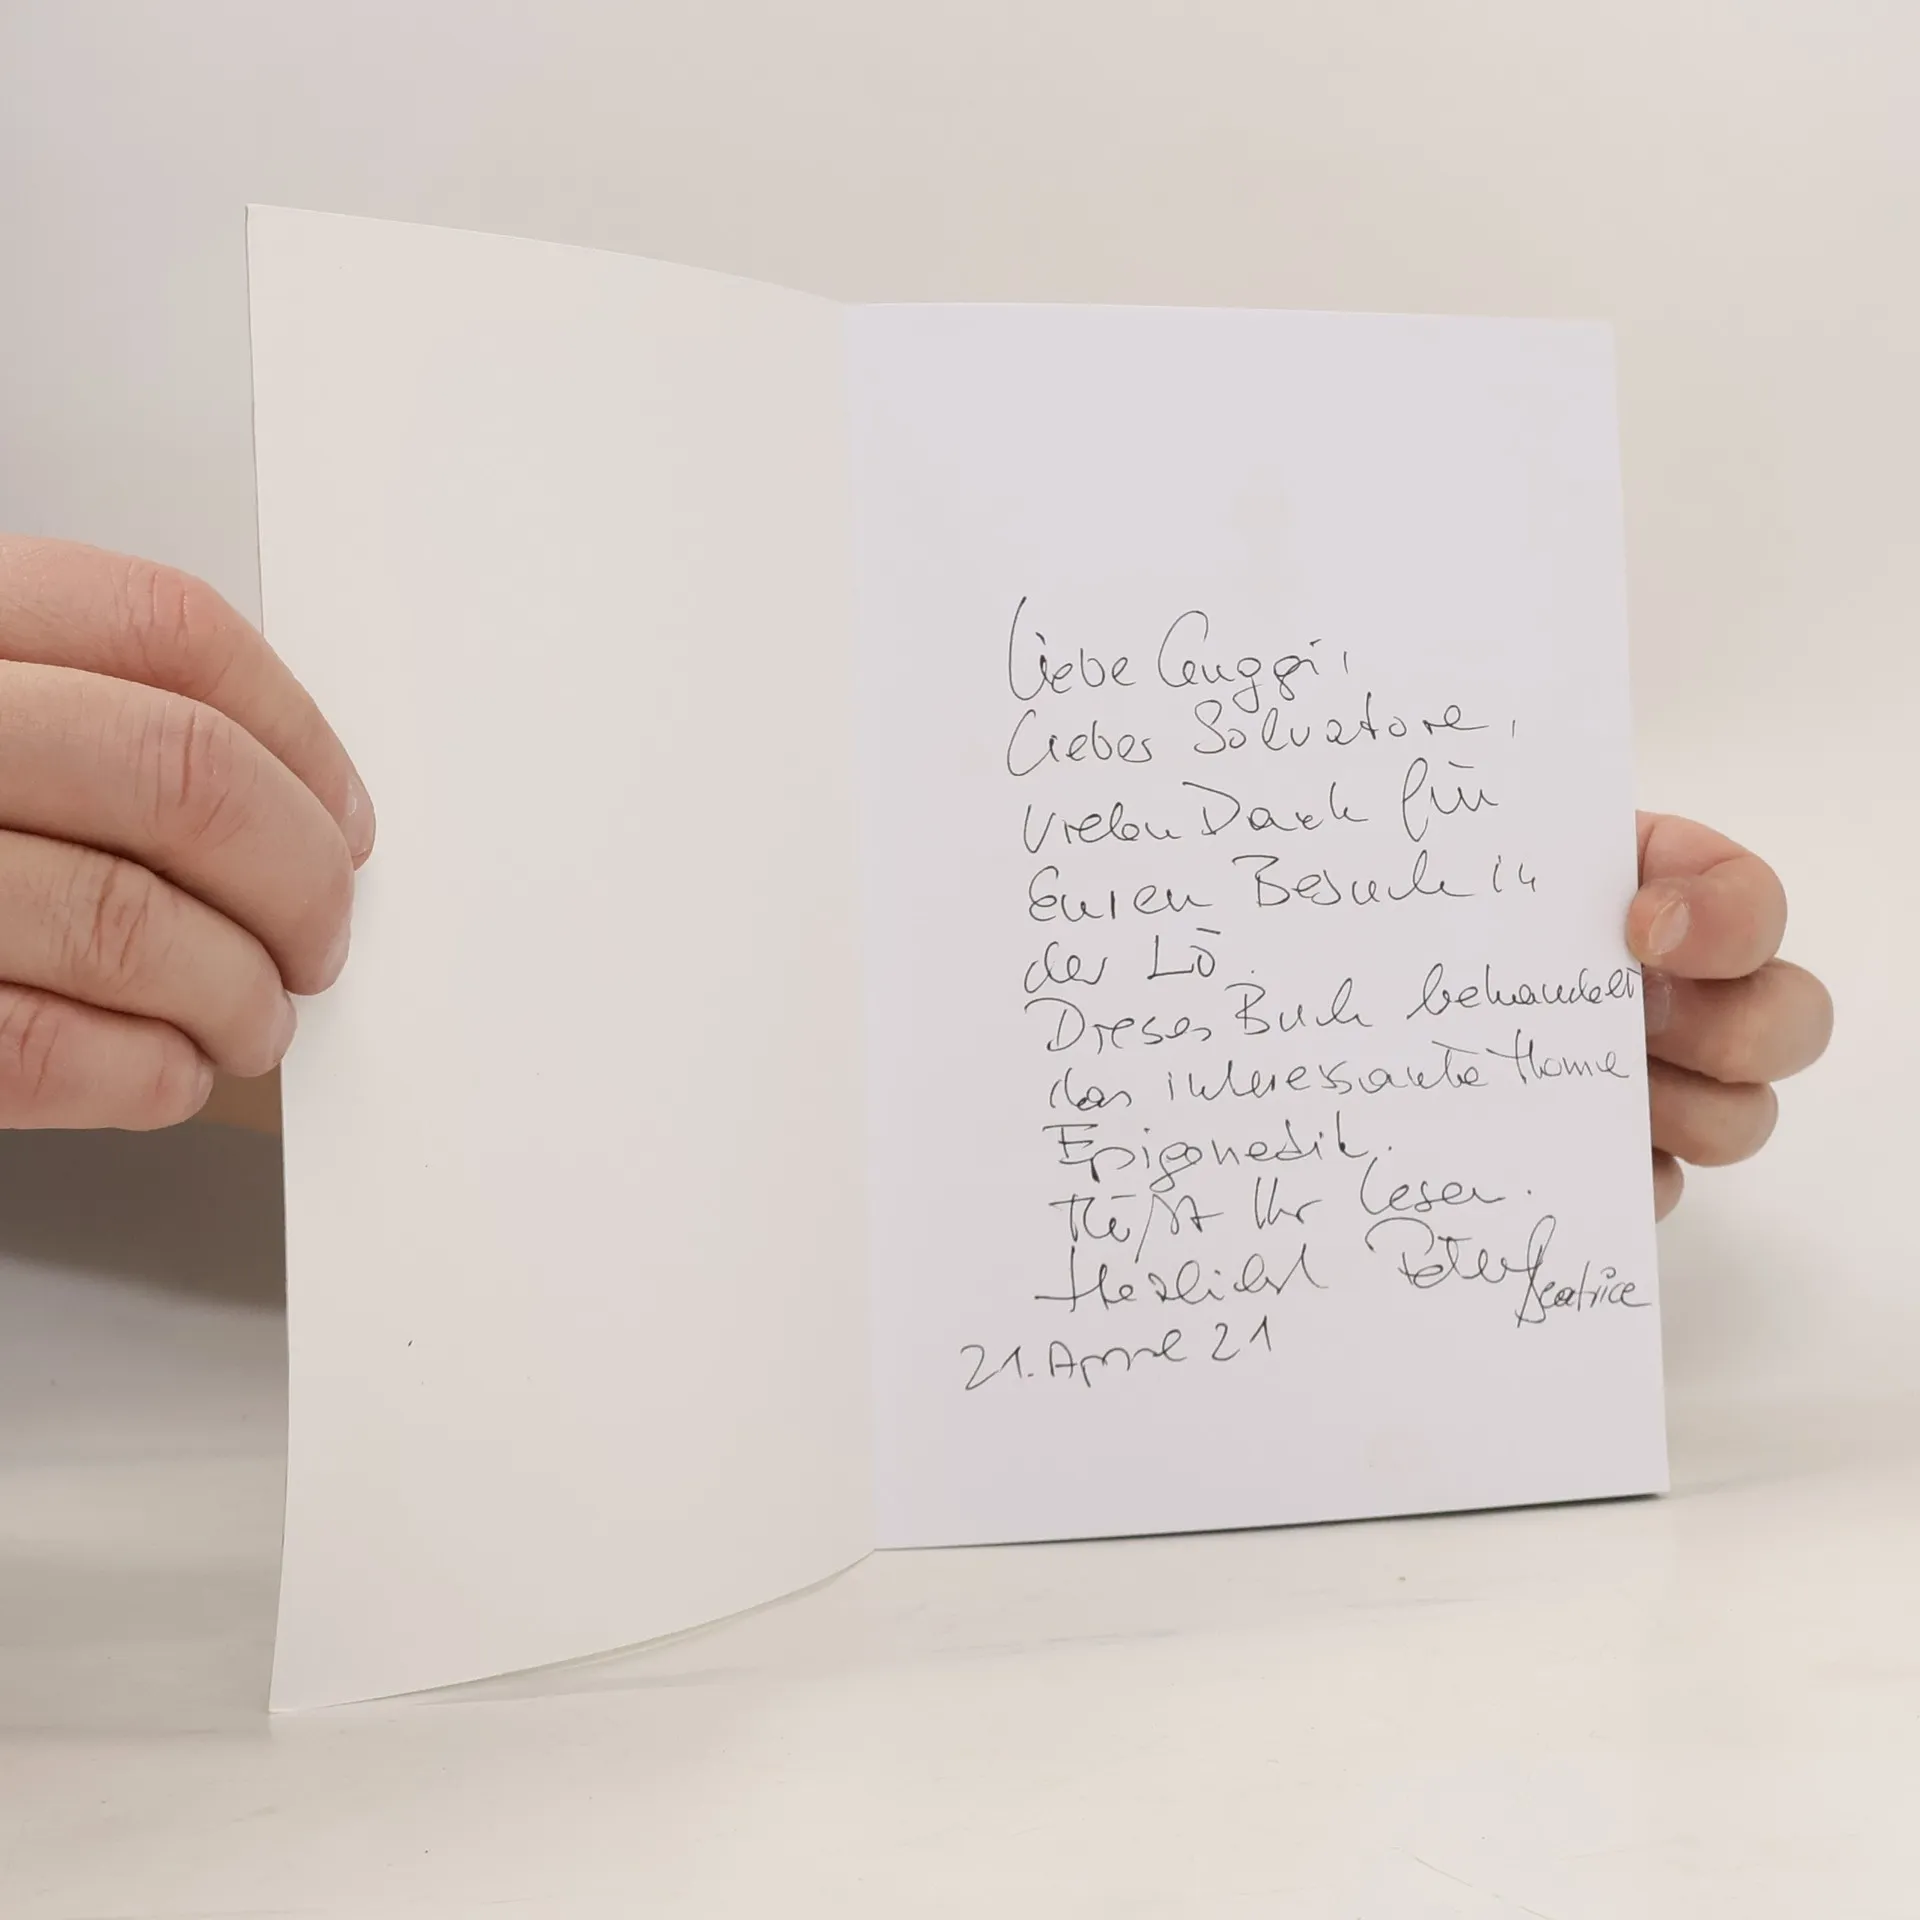 Liebe Guggi,
Lieber Salvatore,
vielen Dank für
Euren Besuch in
der Lö.
Dieses Buch behandelt
das interessante Thema
Epigenedik.
Müßt Ihr lesen.
Herzlichst Peter Beatrice
21. April 21